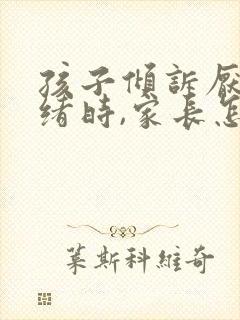 孩子傾訴厭
緒時,家長怎
葉斯科維奇